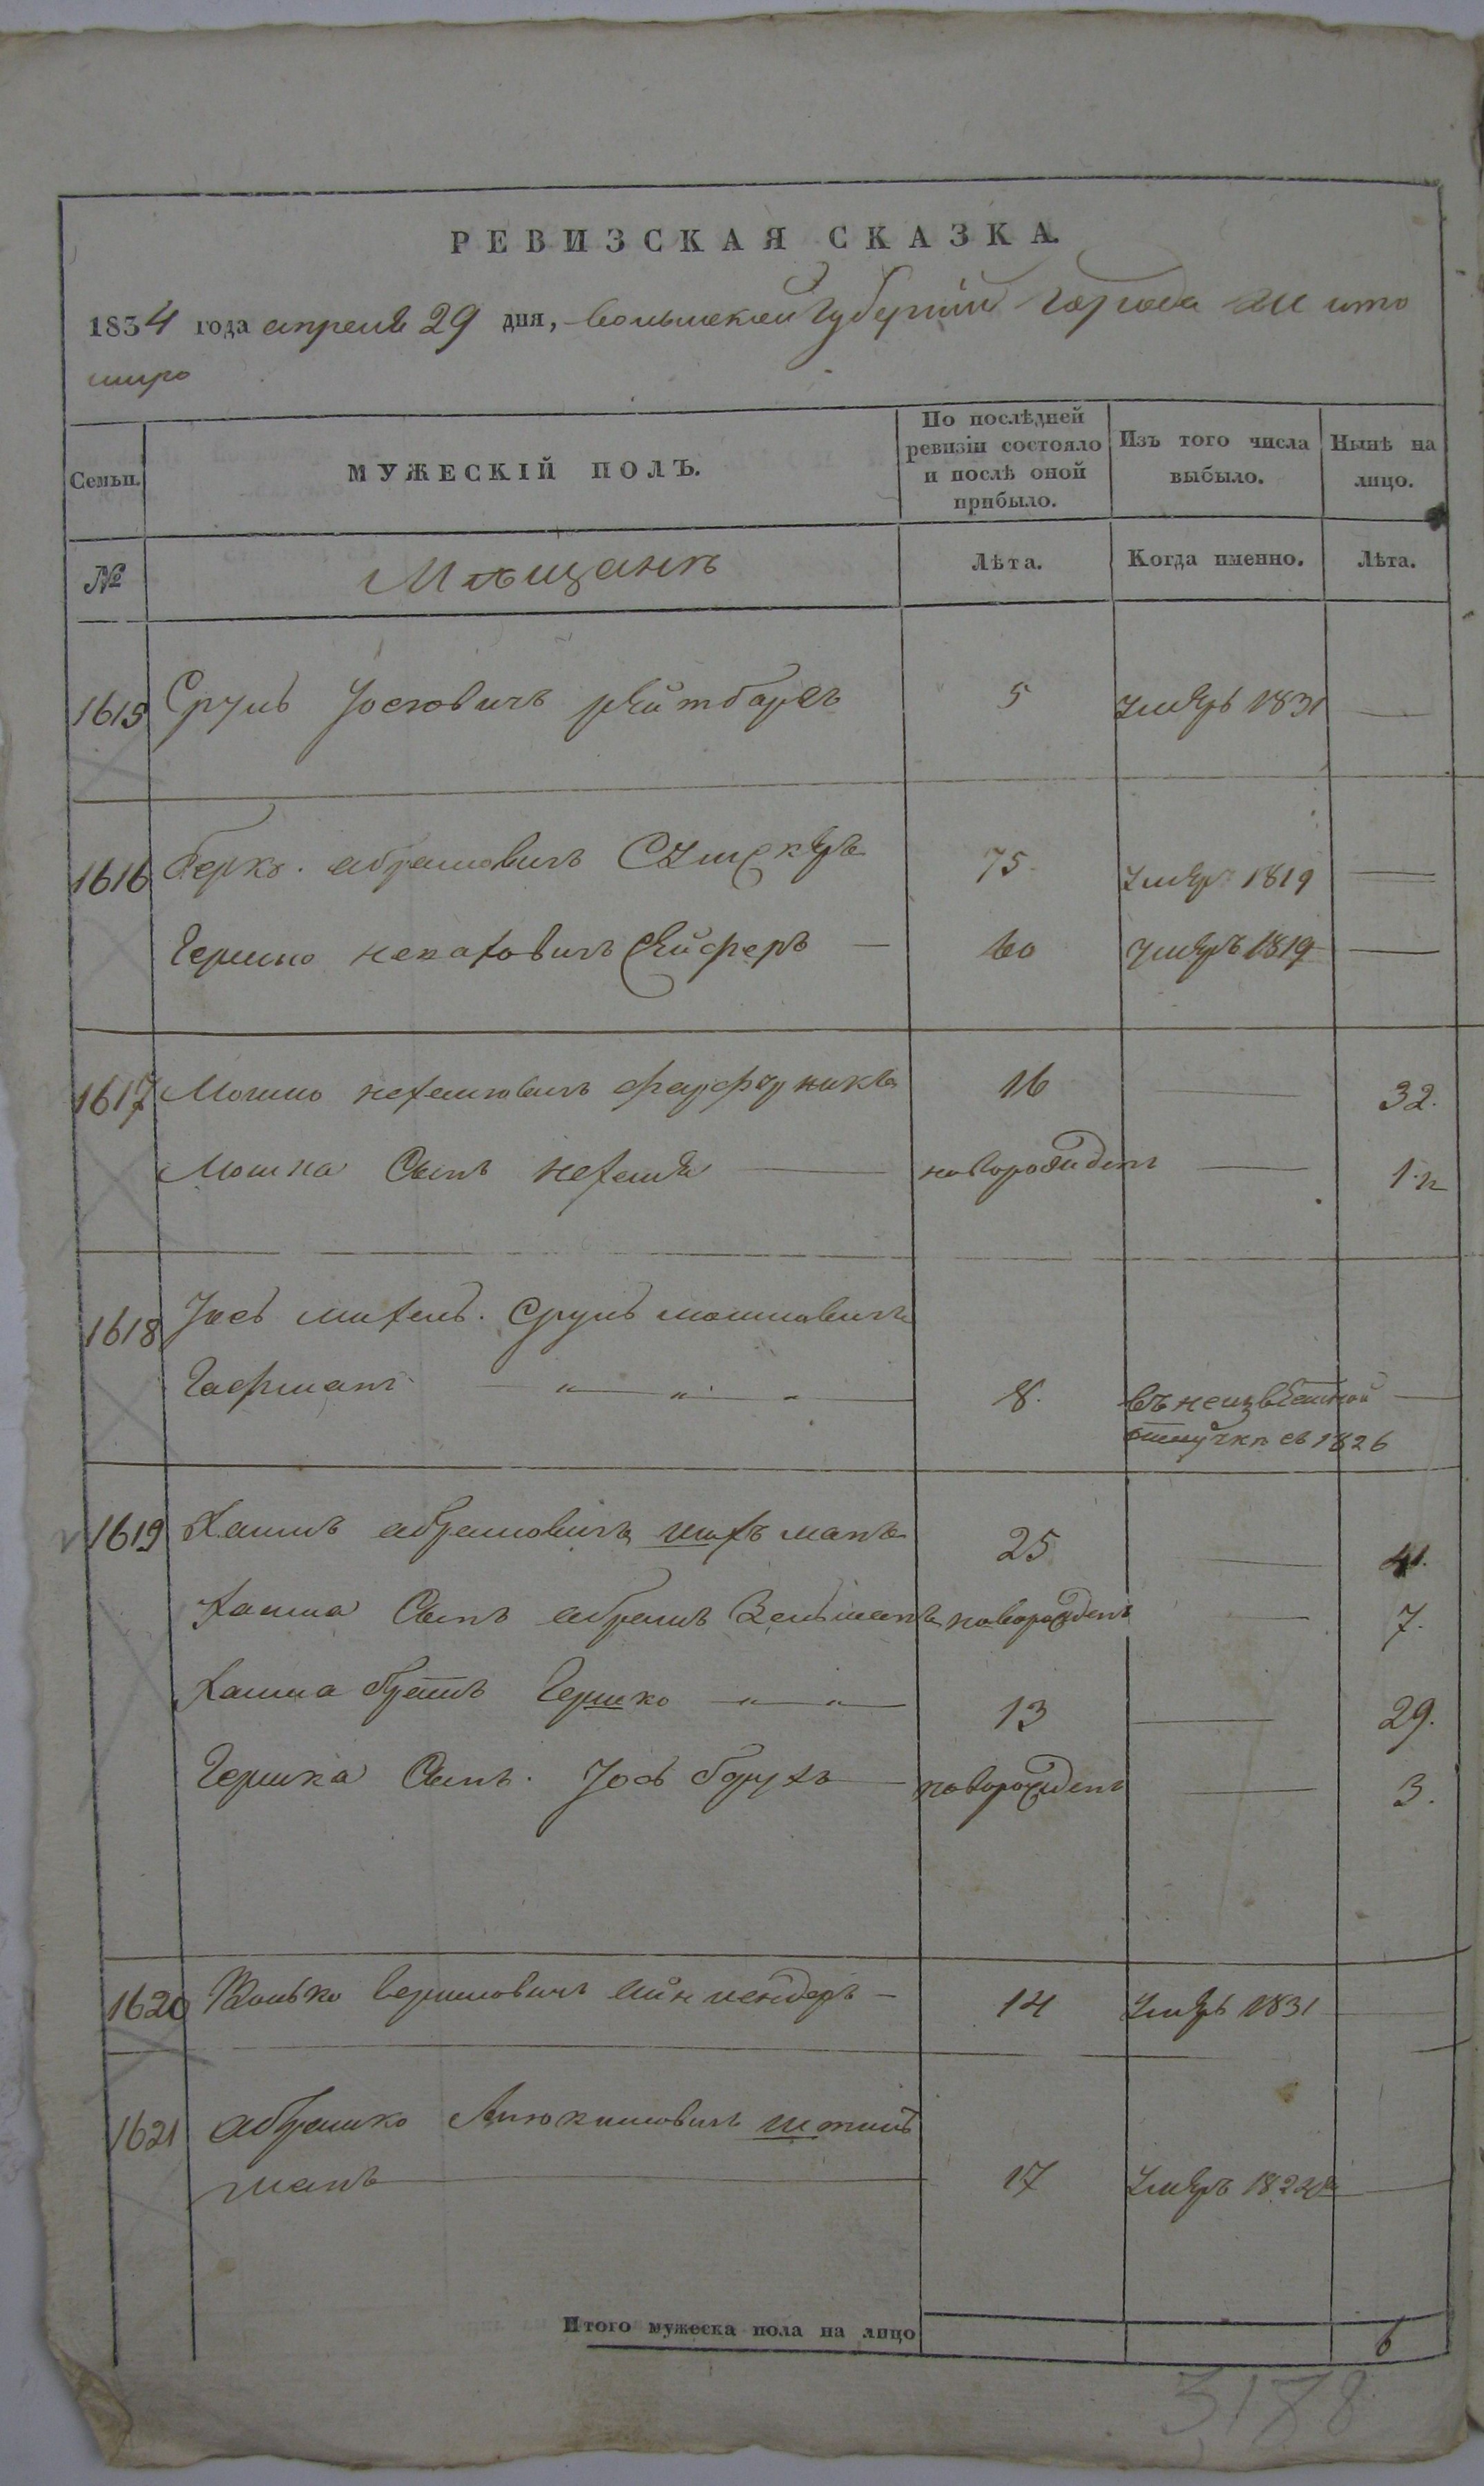 РЕВИЗСКАЯ СКАЗКА.
1834 года апреля 29 дня, волынской губернии города жито
мира
Семьи. МУЖЕСКІЙ ПОЛЪ. По послѣдней ревизіи состояло и послѣ оной прибыло. Изъ того числа выбыло. Нынѣ на лицо.
№ Мѣщанъ Лѣта. Когда именно. Лѣта.
1615 Сруль Іосіовичъ рейтбаръ 5 умеръ 1831 —
1616 берко абрамовичъ 75 умеръ 1819 —
Гершко 60 умеръ 1819 —
1617 Мошко нехемовичъ фарфурникъ 16 — 32.
Мошка сынъ нехемя — новорожденъ — 1/2
1618 Іосъ михель Сруль мошковичъ
Гофманъ — 8. въ неизвѣстной —
отлучкѣ съ 1826
1619 Хаимъ абрамовичъ шухманъ 25 — 41.
Хаима Сынъ абрамъ Зельманъ новорожденъ — 7.
Хаима братъ Гершко — 13 — 29.
Гершка Сынъ Іосъ борухъ — новорожденъ — 3.
1620 Волько Гершковичъ — 14 умеръ 1831 —
1621 абрамко штиль
манъ — 17 умеръ —
Итого мужеска пола на лицо 6
3178